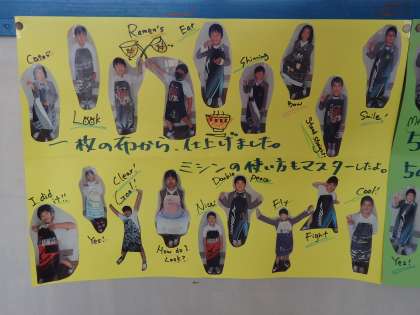 Ramen's
Eat
Cool!
Shining
Look
Bow
Stand straight
Smile!
一枚の布から、仕上げました。
ミシンの使い方もマスターしたよ。
I did it!!
Clear!
Goal!
Double peace
Cool!
Nice
Fly
Yes!
How do I Look?
Fight
Yes!